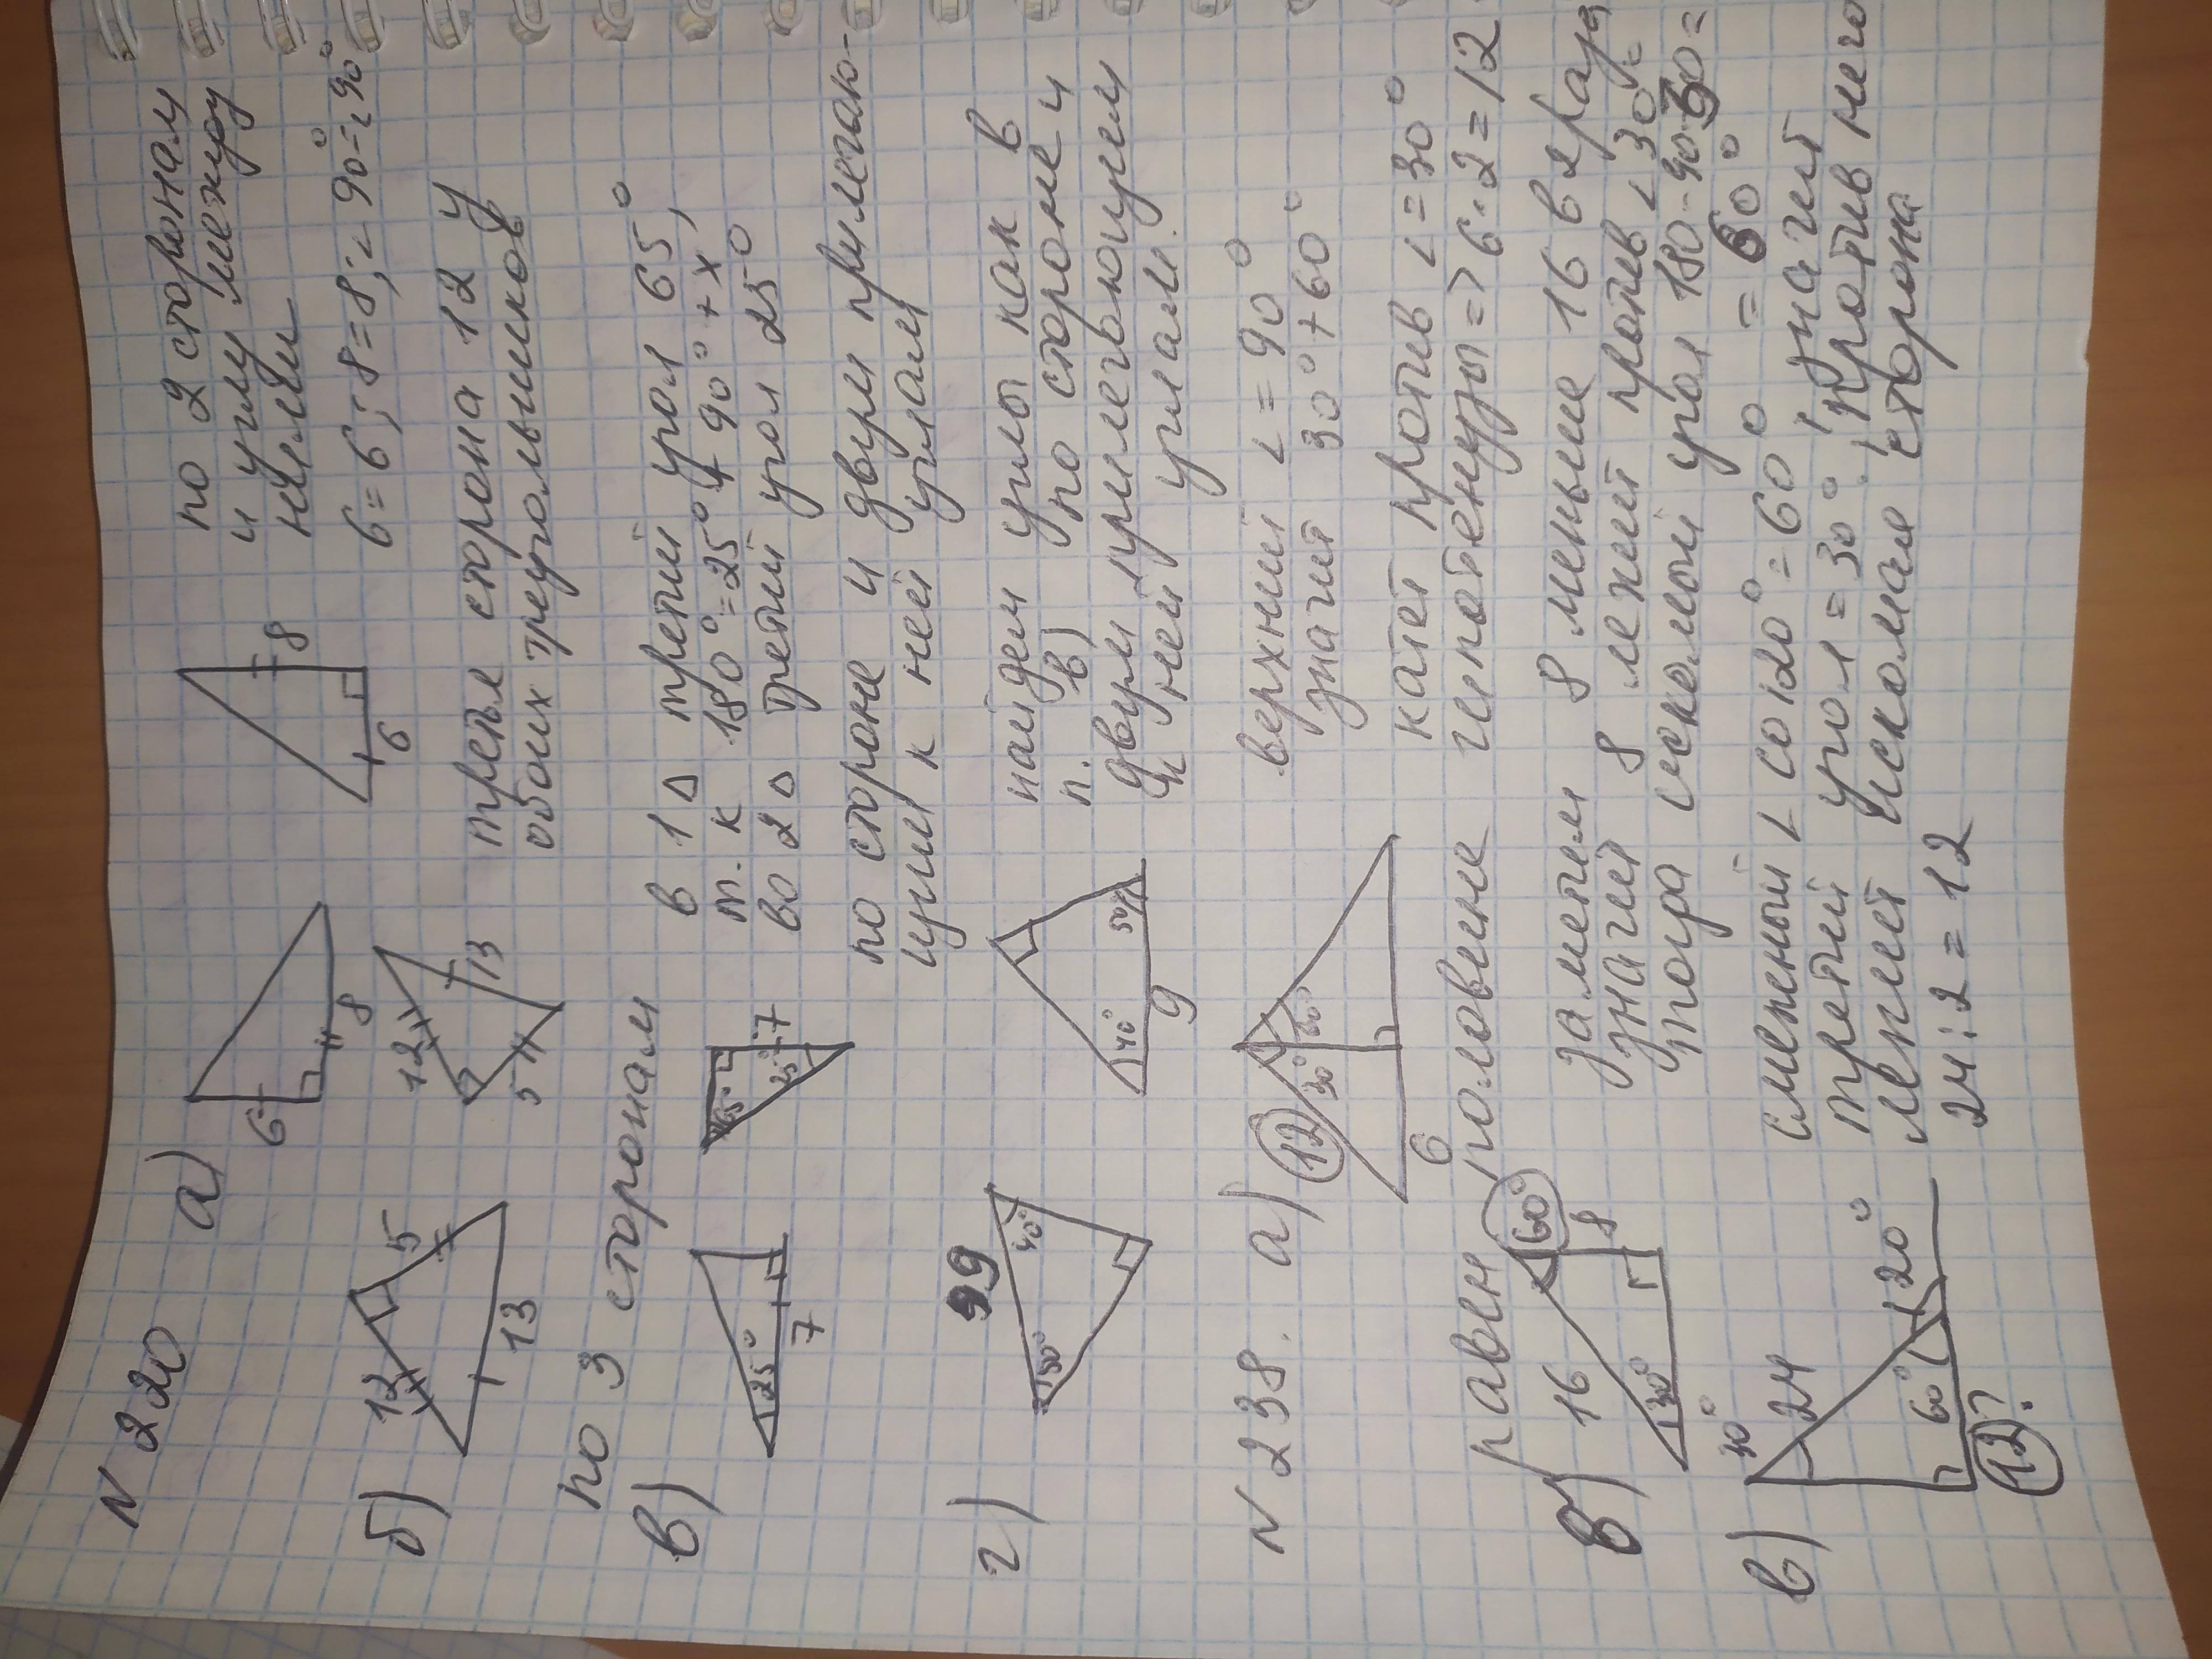 N 220
а) 6 8
8 6
по 2 сторонам
и углу между
ними
6=6; 8=8; ∠90°=∠90°
б) 12 5 13
12 5 13
третья сторона 12 у
обоих треугольников
по 3 сторонам
в) 25° 7
65° 25° 7
в 1 △ третий угол 65°,
т. к 180°=25°+90°+x
во 2 △ третий угол 25°
по стороне и двум прилегаю-
щим к ней углам
г) 9 50° 40°
40° 50° 9
найдем углы как в
п. в) по стороне и
двум прилегающем
к ней углам
N 238. а) 12 30° 60° 6
верхний ∠=90°
значит 30°+60°
катет против ∠=30°
равен половине гипотенузы=>6·2=12
б) 16 60° 8 30°
заметем 8 меньше 16 в 2 раза
значит 8 лежит против ∠30°
тогда искомый угол 180-90-30=
=60°
в) 30° 24 60° 120° 12?
смежный ∠ со 120°=60° значит
третий угол=30°. Против него
лежит искомая сторона
24:2=12